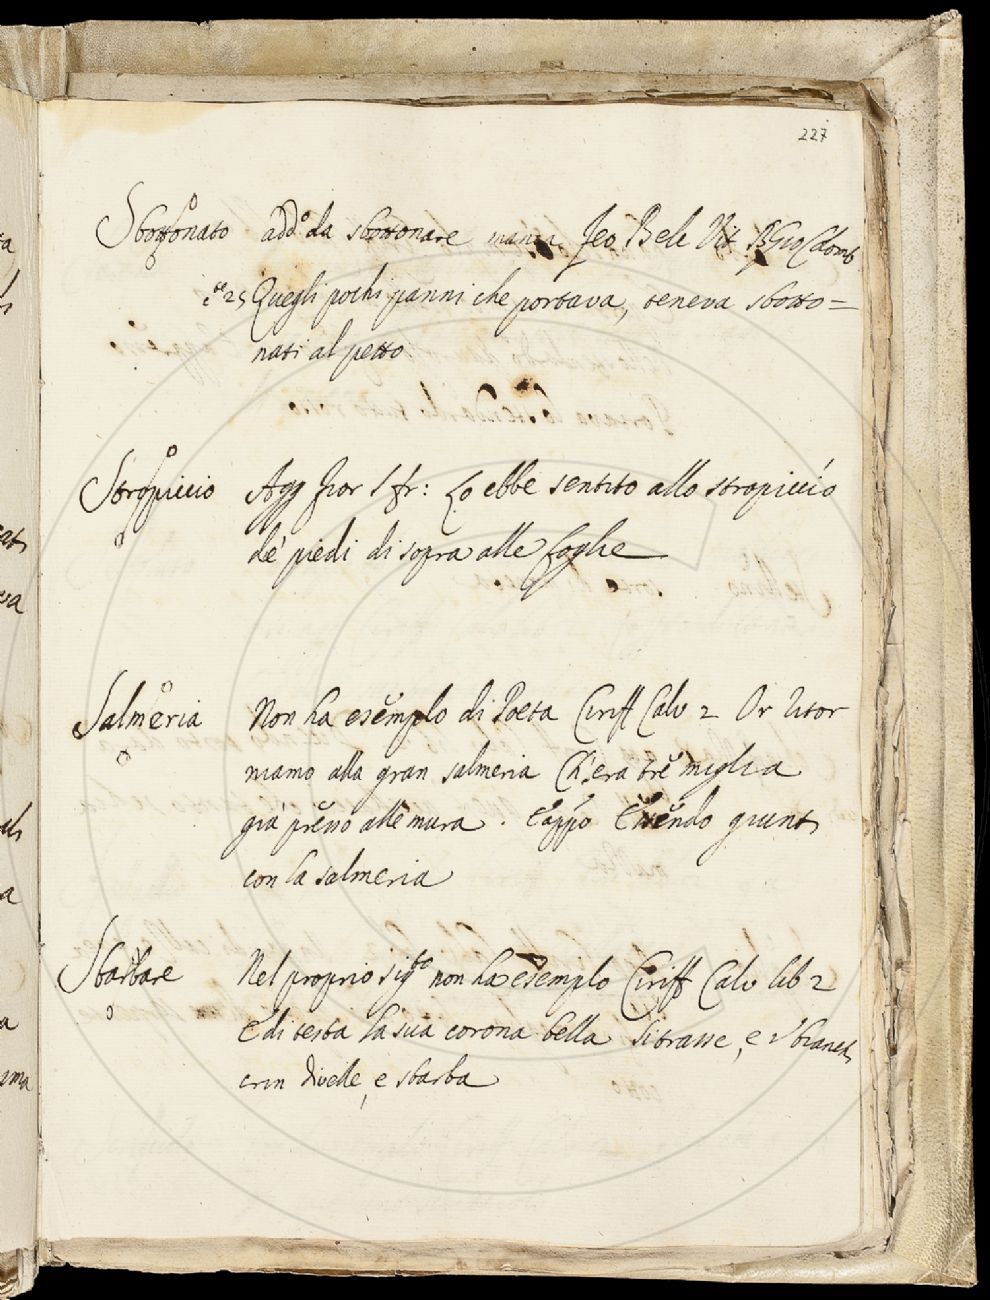 227
Sbottonato add.o da sbottonare manca. Feo Belc Vit B Gio Colomb
c.te 25 Quegli pochi panni che portava, teneva sbotto=
nati al petto
Stropiccio Agg Fior S fr: Lo ebbe sentito allo stropiccio
de' piedi di sopra alle foglie
Salmeria Non ha esempio di Poeta Ciriff Calv 2 Or ritor
niamo alla gran salmeria Ch'era tre miglia
già presso alle mura. E appo Essendo giunti
con la salmeria
Sbarbare Nel proprio sig.to non ha esempio Ciriff Calv lib 2
E di testa la sua corona bella si trasse, e i bianchi
crin divelle, e sbarba